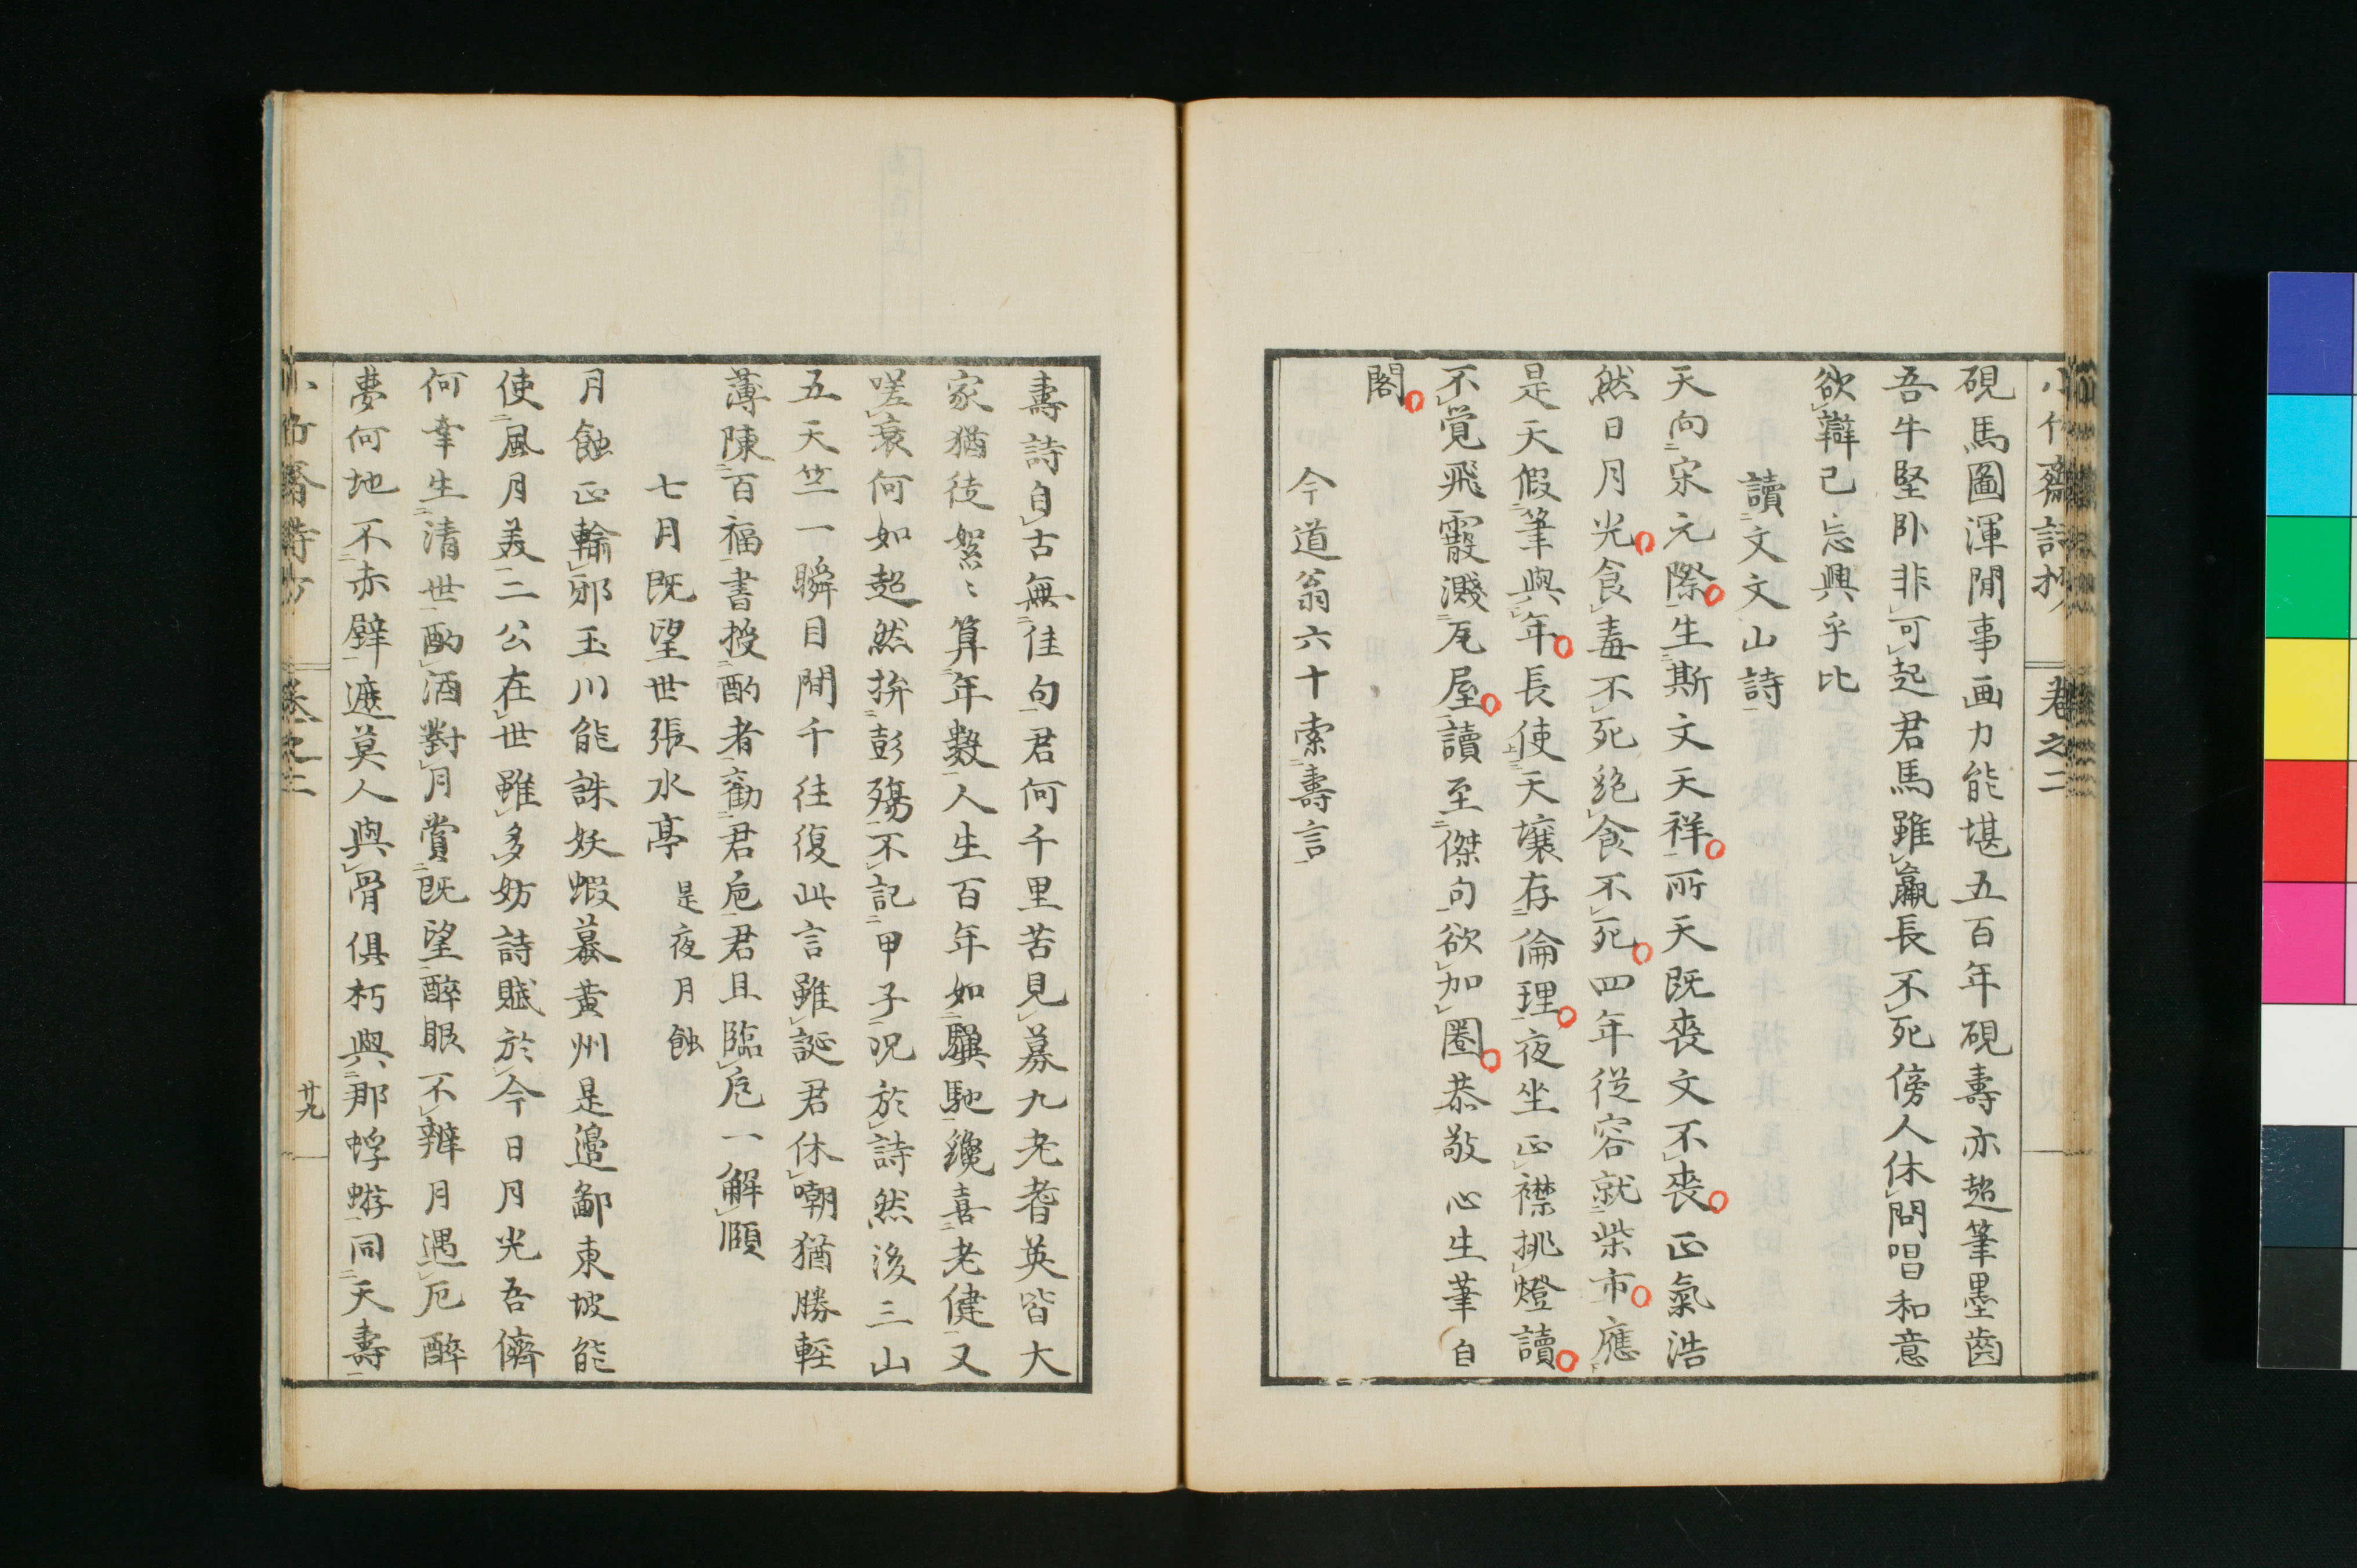 小竹齋詩抄 卷之二
硯馬圖渾閒事画力能堪五百年硯壽亦超筆墨齒
吾牛堅卧非可起君馬雖羸長不死傍人休問唱和意
欲辯已忘興乎比
讀文文山詩
天向宋元際生斯文天祥所天既喪文不喪正氣浩
然日月光食毒不死絶食不死四年從容就柴市應
是天假筆與年長使天壤存倫理夜坐正襟挑燈讀
不覺飛霰濺瓦屋讀至傑句欲加圈恭敬心生筆自
閣
今道翁六十索壽言
壽詩自古無佳句君何千里苦見募九老耆英皆大
家猶徒絮〻算年數人生百年如驥馳纔喜老健又
嗟衰何如超然拚彭殤不記甲子況於詩然後三山
五天竺一瞬目間千往復此言雖誕君休嘲猶勝輕
薄陳百福書授酌者勸君巵君且臨巵一解頤
七月既望世張水亭 是夜月蝕
月蝕正輪邪玉川能誅妖蝦蟇黄州是邊鄙東坡能
使風月美二公在世雖多妨詩賦於今日月光吾儕
何幸生清世酌酒對月賞既望醉眼不辨月遇厄醉
夢何地不赤壁遮莫人與骨俱朽與那蜉蝣同天壽
小竹齋詩抄 卷之二 廿九